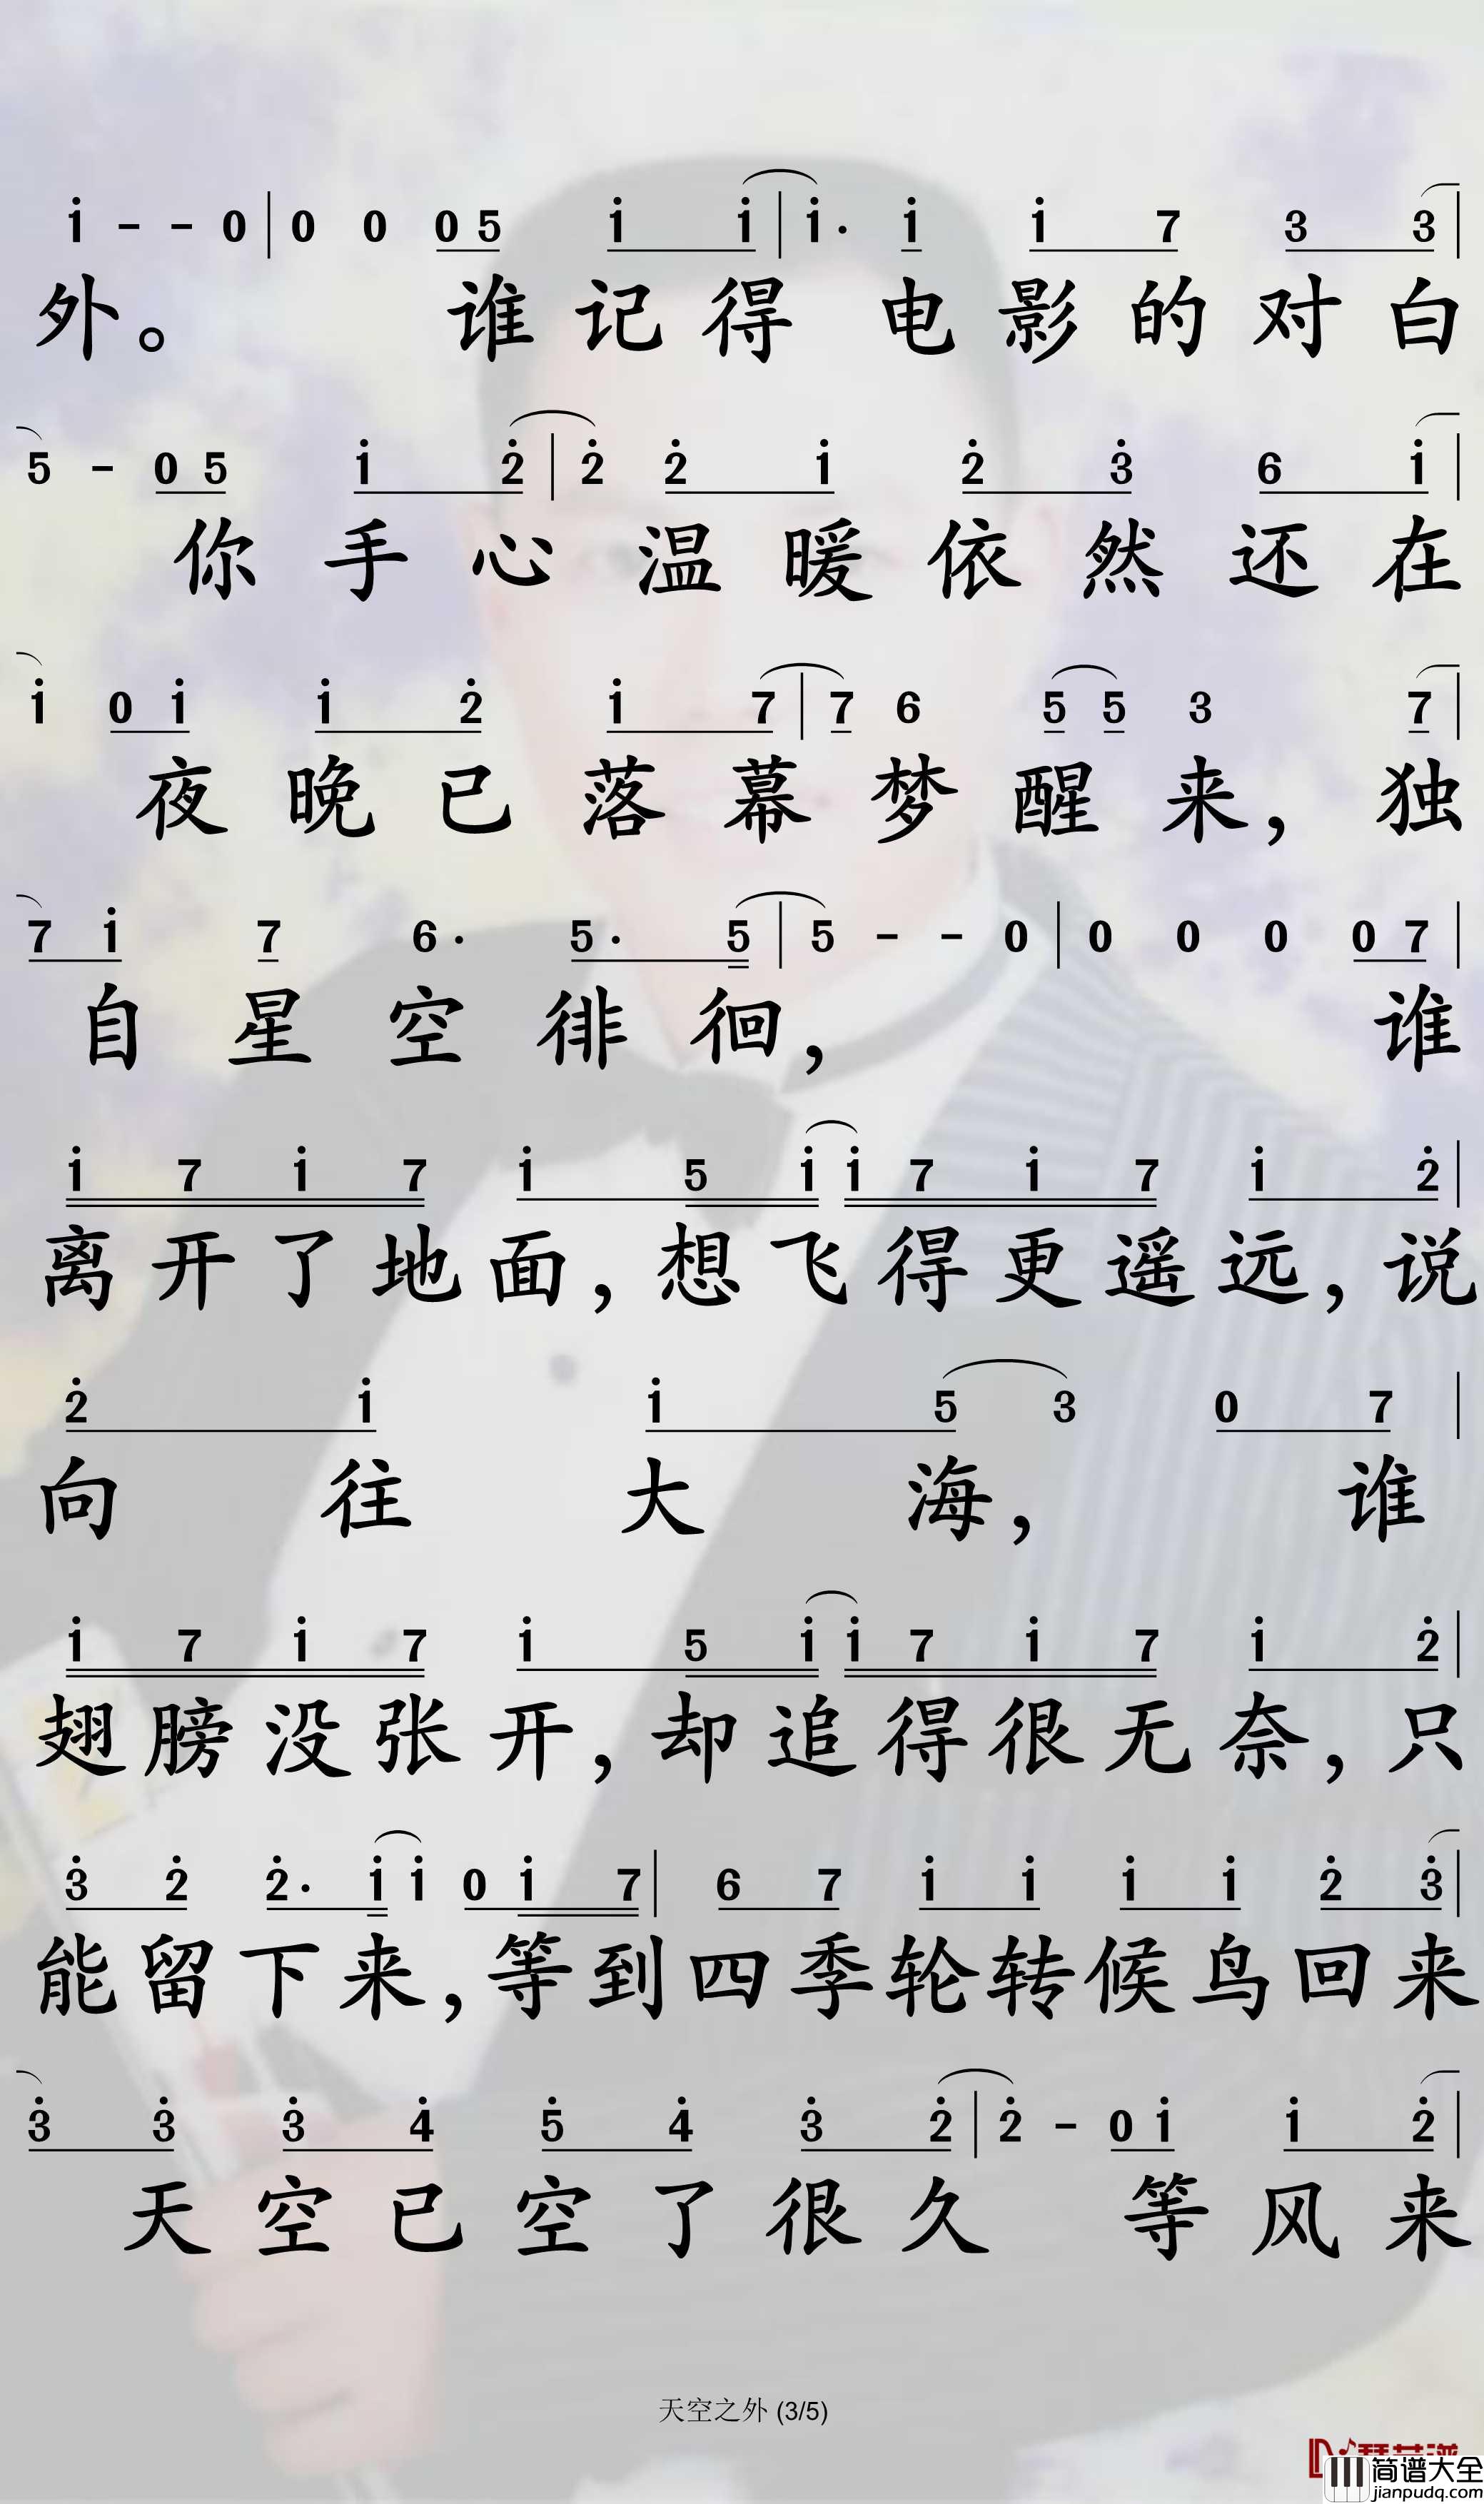 i - - 0 | 0 0 0 5 i i | i · i i 7 3 3 |
外。 谁记得 电影的对白
5 - 0 5 i 2 | 2 2 i 2 3 6 i |
你手心温暖依然还在
i 0 i i 2 i 7 | 7 6 5 5 3 7 |
夜晚已落幕梦醒来,独
7 i 7 6 · 5 · 5 | 5 - - 0 | 0 0 0 0 7 |
自星空徘徊, 谁
i 7 i 7 i 5 i i 7 i 7 i 2 |
离开了地面,想飞得更遥远,说
2 i i 5 3 0 7 |
向往大海, 谁
i 7 i 7 i 5 i i 7 i 7 i 2 |
翅膀没张开,却追得很无奈,只
3 2 2 · i i 0 i 7 | 6 7 i i i i 2 3 |
能留下来,等到四季轮转候鸟回来
3 3 3 4 5 4 3 2 | 2 - 0 i i 2 |
天空已空了很久 等风来
天空之外 (3/5)
简谱大全
jianpudq.com